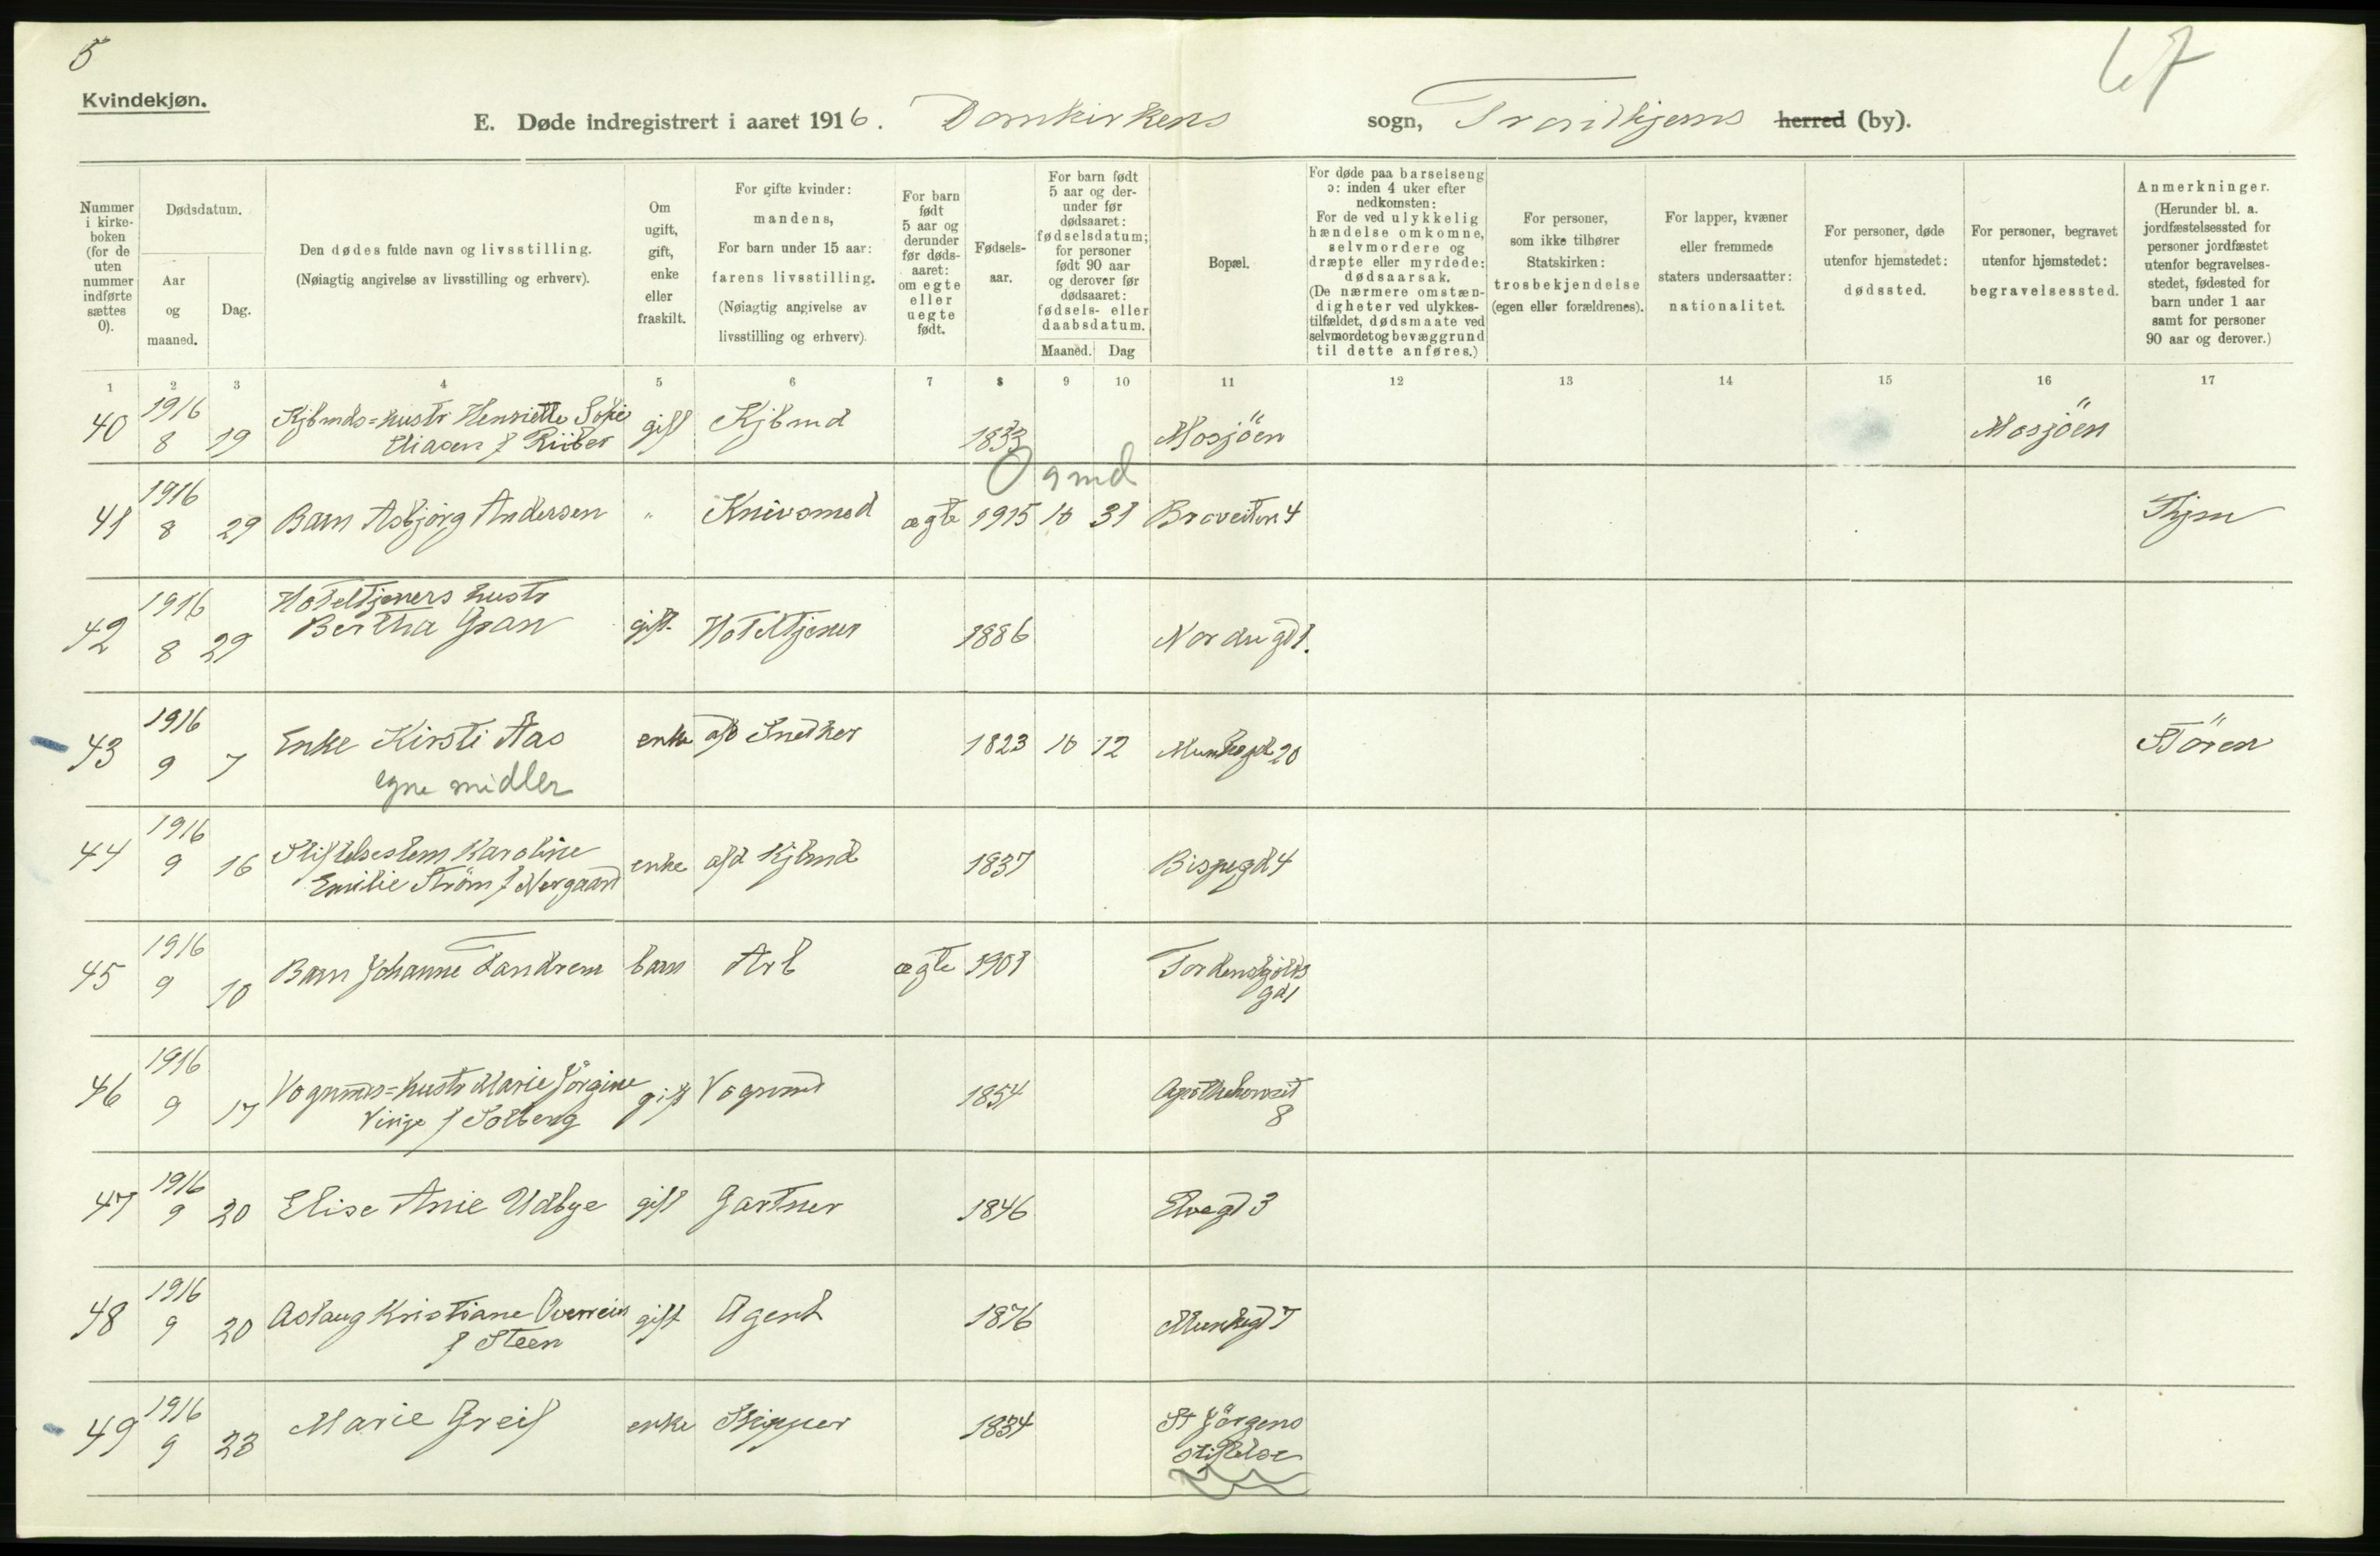 5
67
Kvindekjøn.
E. Døde indregistrert i aaret 1916. Domkirkens sogn, Trondhjems herred (by).
Nummer i kirkeboken (for de uten nummer indførte sættes 0).
Dødsdatum.
Aar og maaned.
Dag.
Den dødes fulde navn og livsstilling.
(Nøiagtig angivelse av livsstilling og erhverv).
Om ugift, gift, enke eller fraskilt.
For gifte kvinder: mandens,
For barn under 15 aar: farens livsstilling.
(Nøiagtig angivelse av livsstilling og erhverv).
For barn født 5 aar og derunder før dødsaaret: om egte eller uegte født.
Fødselsaar.
For barn født 5 aar og derunder før dødsaaret: fødselsdatum; for personer født 90 aar og derover før dødsaaret: fødsels- eller daabsdatum.
Maaned. Dag
Bopæl.
For døde paa barselseng ɔ: inden 4 uker efter nedkomsten:
For de ved ulykkelig hændelse omkomne, selvmordere og dræpte eller myrdede: dødsaarsak.
(De nærmere omstændigheter ved ulykkestilfældet, dødsmaate ved selvmordet og bevæggrund til dette anføres.)
For personer, som ikke tilhører Statskirken: trosbekjendelse (egen eller forældrenes).
For lapper, kvæner eller fremmede staters undersaatter: nationalitet.
For personer, døde utenfor hjemstedet: dødssted.
For personer, begravet utenfor hjemstedet: begravelsessted.
Anmerkninger.
(Herunder bl. a. jordfæstelsessted for personer jordfæstet utenfor begravelsesstedet, fødested for barn under 1 aar samt for personer 90 aar og derover.)
1 2 3 4 5 6 7 8 9 10 11 12 13 14 15 16 17
40 1916 8 19 Kjbmds=hustr Henriette Sofie Eliasen f Riiber gift Kjbmd 1833 Mosjöen Mosjöen
0 9 md
41 1916 8 29 Barn Asbjörg Andersen " Knivsmed ægte 1915 10 31 Braveiten 4 Thjm
42 1916 8 29 Hoteltjeners hustr Bertha Gran gift. Hoteltjener 1886 Nordregd 1.
43 1916 9 7 Enke Kirsti Aas enke afd Snedker 1823 10 12 Munkegd 20 Stören
egne midler
44 1916 9 16 Stiftelseslem Karoline Emilie Ström f Norgaard enke afd Kjbmd 1837 Bispegd 4
45 1916 9 10 Barn Johanne Tandrem barn Arb ægte 1901 Tordenskjolds gd 1
46 1916 9 17 Vognmds=hustr Marie Jörgine Vinje f Solberg gift Vognmd 1854 Apothekerveit 8
47 1916 9 20 Elise Anie Udbye gift Gartner 1846 Elvegd 3
48 1916 9 20 Aslaug Kristiane Overrein f Steen gift Agent 1876 Munkegd 7
49 1916 9 23 Marie Greif enke Skipper 1834 St Jörgens stiftelse